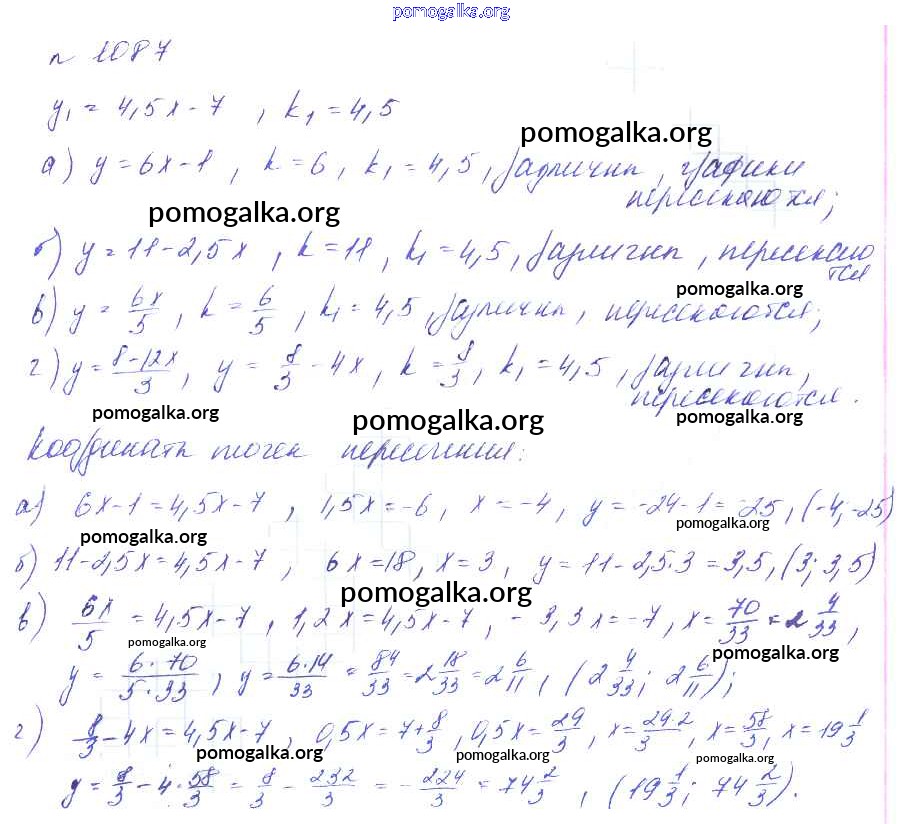 pomogalka.org
n 1087
y₁ = 4,5x - 7 , k₁ = 4,5
pomogalka.org
а) y = 6x - 1 , k = 6 , k₁ = 4,5 , различны , графики пересекаются;
pomogalka.org
б) y = 11 - 2,5x , k = 11 , k₁ = 4,5 , различны , пересекаются
pomogalka.org
в) y = 6x/5 , k = 6/5 , k₁ = 4,5 , различны , пересекаются;
г) y = 8-12x/3 , y = 8/3 - 4x , k = 8/3 , k₁ = 4,5 , различны , пересекаются.
pomogalka.org pomogalka.org pomogalka.org
Координаты точек пересечения:
а) 6x - 1 = 4,5x - 7 , 1,5x = -6 , x = -4 , y = -24 - 1 = -25 , (-4; -25)
pomogalka.org pomogalka.org
б) 11 - 2,5x = 4,5x - 7 , 6x = 18 , x = 3 , y = 11 - 2,5·3 = 3,5 , (3; 3,5)
pomogalka.org
в) 6x/5 = 4,5x - 7 , 1,2x = 4,5x - 7 , -3,3x = -7 , x = 70/33 = 2 4/33 ,
pomogalka.org pomogalka.org
y = 6·70/5·33 , y = 6·14/33 = 84/33 = 2 18/33 = 2 6/11 , (2 4/33; 2 6/11);
г) 8/3 - 4x = 4,5x - 7 , 0,5x = 7 + 8/3 , 0,5x = 29/3 , x = 29·2/3 , x = 58/3 , x = 19 1/3
pomogalka.org pomogalka.org pomogalka.org
y = 8/3 - 4·58/3 = 8/3 - 232/3 = - 224/3 = 74 2/3 , (19 1/3; 74 2/3).